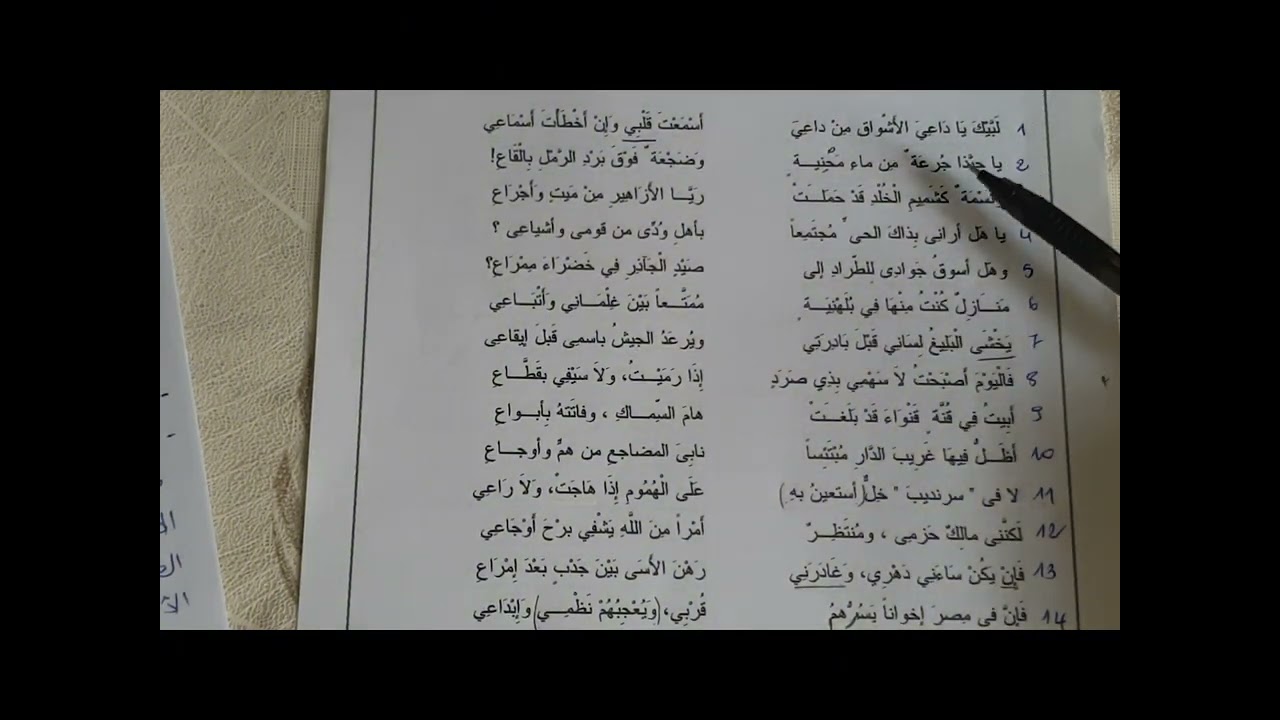 1 لَبَّيْكَ يَا دَاعِيَ الأَشْواقِ مِنْ داعِيَ أَسْمَعْتَ قَلْبِي وَإِنْ أَخْطَأْتَ أَسْمَاعِي
2 يا حبّذا جُرعَةٌ مِن ماءِ مَحْنِيـةٍ وَضَجْعَةٌ فَوْقَ بَرْدِ الرَّمْلِ بِالْقَاعِ!
وَنَسْمَةٌ كَشَمِيمِ الْخُلْدِ قَدْ حَمَلَـتْ رَيَّـا الأَزَاهِيرِ مِنْ مَيثٍ وَأَجْرَاعِ
4 يا هَل أرانِى بِذاكَ الحى مُجتَمِعاً بأهلِ وُدِّى من قومى وأشياعِى ؟
5 وهَل أسوقُ جَوادِى لِلطِّرادِ إلى صَيْدِ الْجَآذِرِ فِي خَضْرَاءَ مِمْرَاعِ؟
6 مَنَـازِلٌ كُنْتُ مِنْهَا فِي بُلَهْنِيَـةٍ مُمَتَّـعاً بَيْنَ غِلْمَـانِي وَأَتْبَـاعِي
7 يَخْشَى الْبَلِيغُ لِسَانِي قَبْلَ بَادِرَتِي ويُرعَدُ الجيشُ باسمِى قَبلَ إيقاعِى
8 فَالْيَوْمَ أَصْبَحْتُ لاَ سَهْمِي بِذِي صَرَدٍ إِذَا رَمَيْـتُ، وَلاَ سَيْفِي بقَطَّـاعِ
9 أَبِيتُ فِي قُنَّةٍ قَنْوَاءَ قَدْ بَلَغَـتْ هامَ السِّماكِ ، وفاتَتهُ بِأبـواعِ
10 أَظَـلُّ فِيهَا غَرِيبَ الدَّارِ مُبْتَئِساً نابِىَ المضاجعِ من هَمٍّ وأوجـاعِ
11 لا فى "سرنديبَ" خِلٌّ (أستعينُ بهِ) عَلَى الْهُمُومِ إِذَا هَاجَتْ، وَلاَ رَاعِي
12 لَكنَّنِى مالِكٌ حَزمِى ، ومُنتَظِـرٌ أَمْراً مِنَ اللَّهِ يَشْفِي برْحَ أَوْجَاعِي
13 فَإِنْ يَكُنْ سَاءَنِي دَهْرِي، وَغَادَرَنِي رَهْنَ الأَسَى بَيْنَ جَدْبٍ بَعْدَ إِمْرَاعِ
14 فَإنَّ فى مِصرَ إخواناً يَسُرُّهمُ قُرْبِي، (وَيُعْجِبُهُمْ نَظْمِـي) وَإِبْدَاعِي